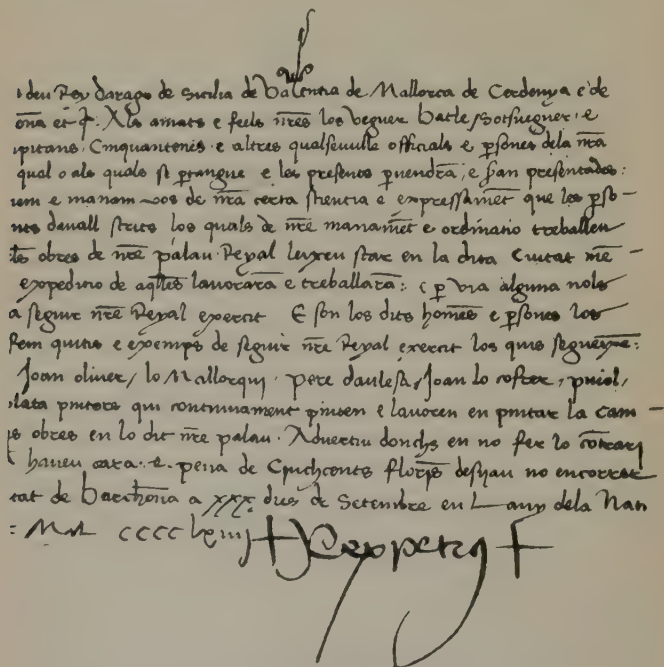 deu Rey darago de Sicilia de Valentia de Mallorca de Cerdenya e de
ona et Als amats e feels nres los veguer batle sotsveguer e
Cinquantenes e altres qualsevulle officials e psones dela nra
qual o als quals se ptangue e les presents pvendra e seran presentades:
e manam vos de nra certa scientia e expressamet que les pso-
nes davall scrits los quals de nre manamet e ordinatio treballen
les obres de nre palau Reyal leixeu star en la dita Ciutat me-
expeditio de aqlles lavorara e treballara: e p via alguna nols
a seguir nre Reyal exercit E son los dits homes e psones los
fem quitis e exemps de seguir nre Reyal exercit los quis segueixe:
Joan oliver, lo Mallorqui, pere daulesa, Joan lo cofrer, puiol,
plata pintors qui continuament pinten e lavoren en pintar la Cam-
obres en lo dit nre palau. Advertiu donchs en no fer lo contrari
haveu cara e pena de Cinchcents floris desijau no encorrer
tat de barchna a xxx dies de Setembre en Lany dela Nati
Mil cccc lxiiij Rey petri